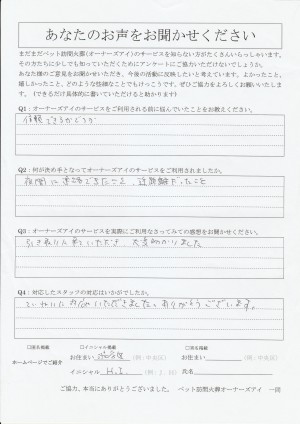 あなたのお声をお聞かせください
まだまだペット訪問火葬(オーナーズアイ)のサービスを知らない方がたくさんいらっしゃいます。
その方たちに少しでも知っていただくためにアンケートにご協力いただけないでしょうか。
あなた様のご意見をお聞かせいただき、今後の活動に反映したいと考えています。よかったこと、
嬉しかったこと、どのような些細なことでもけっこうです、ぜひご協力をよろしくお願いいたしま
す。(できるだけ具体的に書いていただけると助かります)
Q1:オーナーズアイのサービスをご利用される前に悩んでいたことをお教えください。
信頼できるかどうか
Q2:何が決め手となってオーナーズアイのサービスをご利用されましたか。
夜間に連絡できたこと、近距離だったこと
Q3:オーナーズアイのサービスを実際にご利用なさってみての感想をお聞かせください。
引き取りに来ていただき 大変助かりました
Q4:対応したスタッフの対応はいかがでしたか。
ていねいに対応いただきました。ありがとうございます。
□実名掲載 □イニシャル掲載 □匿名掲載
ホームページでご紹介 お住まい (例:中央区) お住まい (例:中央区)
イニシャル K.I. (例:J.H) 氏名
ご協力、本当にありがとうございました。 ペット訪問火葬オーナーズアイ 一同